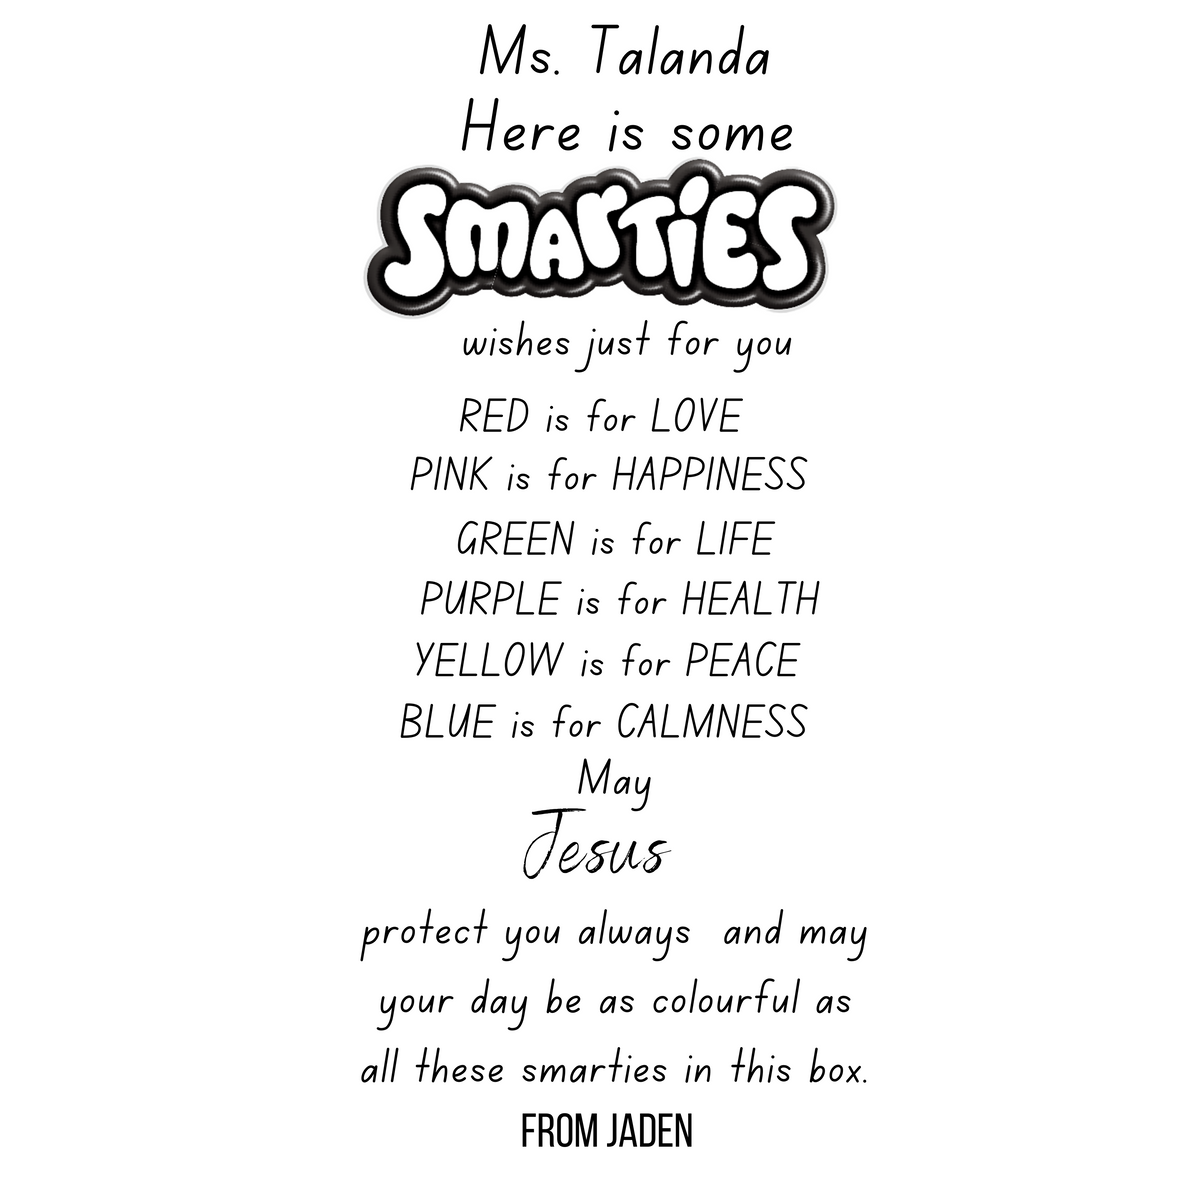 Ms. Talanda
Here is some
SMARTIES
wishes just for you
RED is for LOVE
PINK is for HAPPINESS
GREEN is for LIFE
PURPLE is for HEALTH
YELLOW is for PEACE
BLUE is for CALMNESS
May
Jesus
protect you always and may
your day be as colourful as
all these smarties in this box.
FROM JADEN